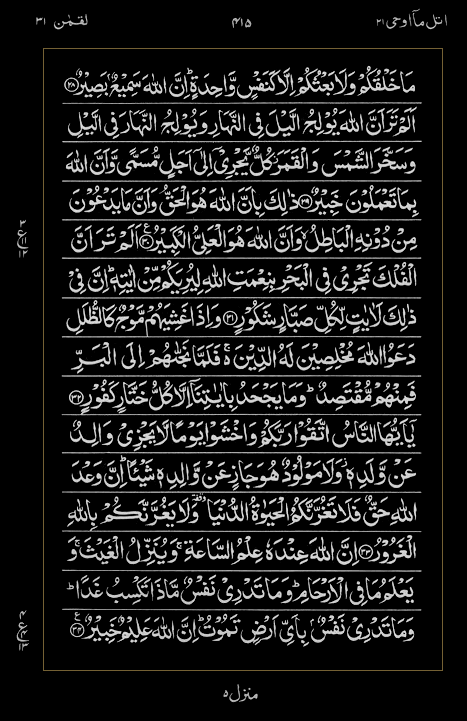 اتل مآ اوحی ٢١ ٤١٥ لقمٰن ٣١
مَا خَلْقُكُمْ وَلَا بَعْثُكُمْ اِلَّا كَنَفْسٍ وَّاحِدَةٍ ؕ اِنَّ اللّٰهَ سَمِیْعٌۢ بَصِیْرٌ ﴿۲۸﴾
اَلَمْ تَرَ اَنَّ اللّٰهَ یُوْلِجُ الَّیْلَ فِی النَّهَارِ وَیُوْلِجُ النَّهَارَ فِی الَّیْلِ
وَسَخَّرَ الشَّمْسَ وَالْقَمَرَ ؗ كُلٌّ یَّجْرِیْۤ اِلٰۤی اَجَلٍ مُّسَمًّی وَّاَنَّ اللّٰهَ
بِمَا تَعْمَلُوْنَ خَبِیْرٌ ﴿۲۹﴾ ذٰلِكَ بِاَنَّ اللّٰهَ هُوَ الْحَقُّ وَاَنَّ مَا یَدْعُوْنَ
مِنْ دُوْنِهِ الْبَاطِلُ ۙ وَاَنَّ اللّٰهَ هُوَ الْعَلِیُّ الْكَبِیْرُ ﴿۳۰﴾ ع اَلَمْ تَرَ اَنَّ
٣
ع
١١
١٢
الْفُلْكَ تَجْرِیْ فِی الْبَحْرِ بِنِعْمَتِ اللّٰهِ لِیُرِیَكُمْ مِّنْ اٰیٰتِهٖ ؕ اِنَّ فِیْ
ذٰلِكَ لَاٰیٰتٍ لِّكُلِّ صَبَّارٍ شَكُوْرٍ ﴿۳۱﴾ وَاِذَا غَشِیَهُمْ مَّوْجٌ كَالظُّلَلِ
دَعَوُا اللّٰهَ مُخْلِصِیْنَ لَهُ الدِّیْنَ ۚ۬ فَلَمَّا نَجّٰىهُمْ اِلَی الْبَرِّ
فَمِنْهُمْ مُّقْتَصِدٌ ؕ وَمَا یَجْحَدُ بِاٰیٰتِنَاۤ اِلَّا كُلُّ خَتَّارٍ كَفُوْرٍ ﴿۳۲﴾
یٰۤاَیُّهَا النَّاسُ اتَّقُوْا رَبَّكُمْ وَاخْشَوْا یَوْمًا لَّا یَجْزِیْ وَالِدٌ
عَنْ وَّلَدِهٖ ؗ وَلَا مَوْلُوْدٌ هُوَ جَازٍ عَنْ وَّالِدِهٖ شَیْـًٔا ؕ اِنَّ وَعْدَ
اللّٰهِ حَقٌّ فَلَا تَغُرَّنَّكُمُ الْحَیٰوةُ الدُّنْیَا ۥ وَلَا یَغُرَّنَّكُمْ بِاللّٰهِ
الْغَرُوْرُ ﴿۳۳﴾ اِنَّ اللّٰهَ عِنْدَهٗ عِلْمُ السَّاعَةِ ۚ وَیُنَزِّلُ الْغَیْثَ ۚ وَ
یَعْلَمُ مَا فِی الْاَرْحَامِ ؕ وَمَا تَدْرِیْ نَفْسٌ مَّاذَا تَكْسِبُ غَدًا ؕ
وَمَا تَدْرِیْ نَفْسٌۢ بِاَیِّ اَرْضٍ تَمُوْتُ ؕ اِنَّ اللّٰهَ عَلِیْمٌ خَبِیْرٌ ﴿۳۴﴾ ع
٤
ع
٤
١٣
منزل ٥